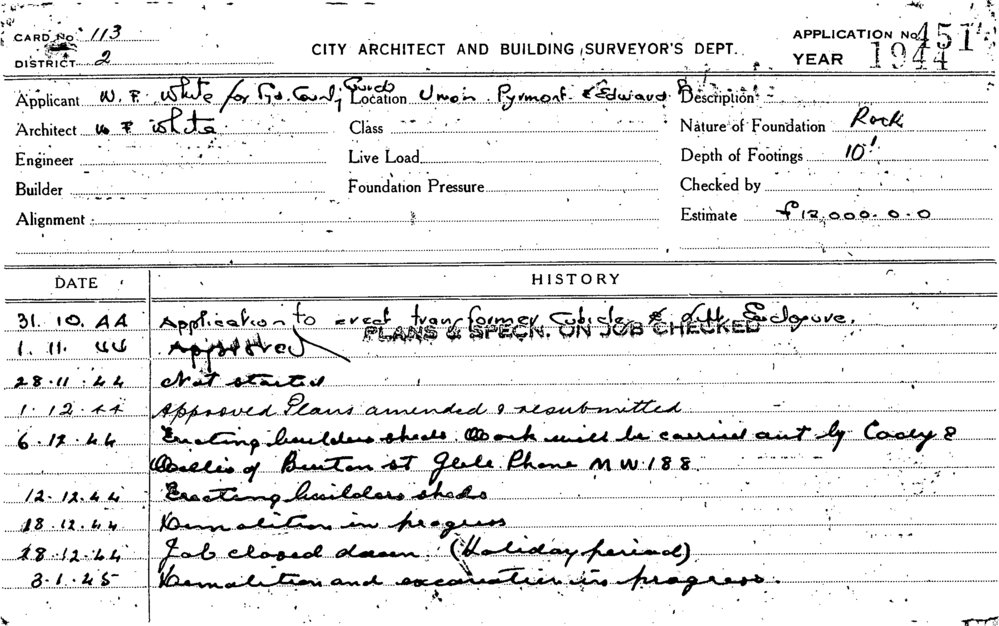 CARD No 113
DISTRICT 2
CITY ARCHITECT AND BUILDING SURVEYOR'S DEPT.
APPLICATION No 451
YEAR 1944
Applicant W. F. White for Location Union Pyrmont & Edward Description
Architect W F White Class Nature of Foundation Rock
Engineer Live Load Depth of Footings 10'
Builder Foundation Pressure Checked by
Alignment Estimate £12,000.0.0
DATE HISTORY
31.10.44 Application to erect transformer cubicle & lift Enclosure.
PLANS & SPECN. ON JOB CHECKED
1.11.44 Approved
28.11.44 Not started
1.12.44 Approved Plans amended & resubmitted
6.12.44 Erecting builders sheds. Work will be carried out by &
Willis of st Glebe Phone MW188
12.12.44 Erecting builders sheds
18.12.44 Demolition in progress
28.12.44 Job closed down (Holiday period)
3.1.45 Demolition and excavation in progress.